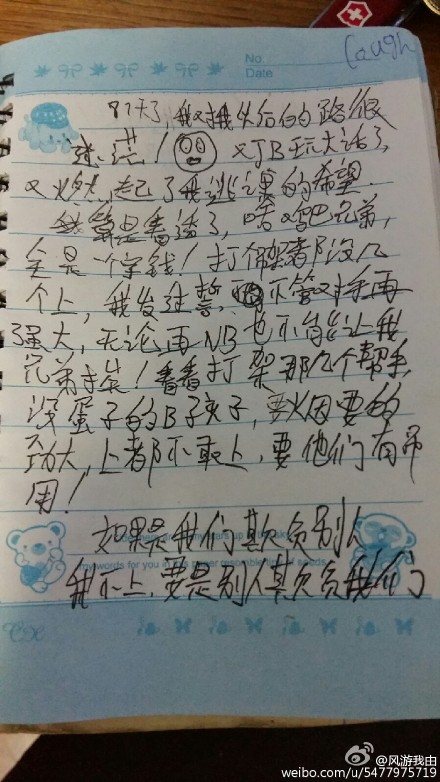 No.
Date
Caugh
81天了,我对我以后的路很
迷茫!又JB玩大话了,
又燃起了我逃课的希望.
我算是看透了,啥JB兄弟,
全是一个字钱!打个架都没几
个上,我发过誓,不管对手再
强大,无论再NB也不能让我
兄弟挨!看看打架那几个帮手,
没蛋子的B孩子,要烟要的
劲大,上都不敢上,要他们有吊
用!
如果是我们欺负别人
我不上,要是别人欺负我们
my words for you in
@风游我由
weibo.com/u/5477975719